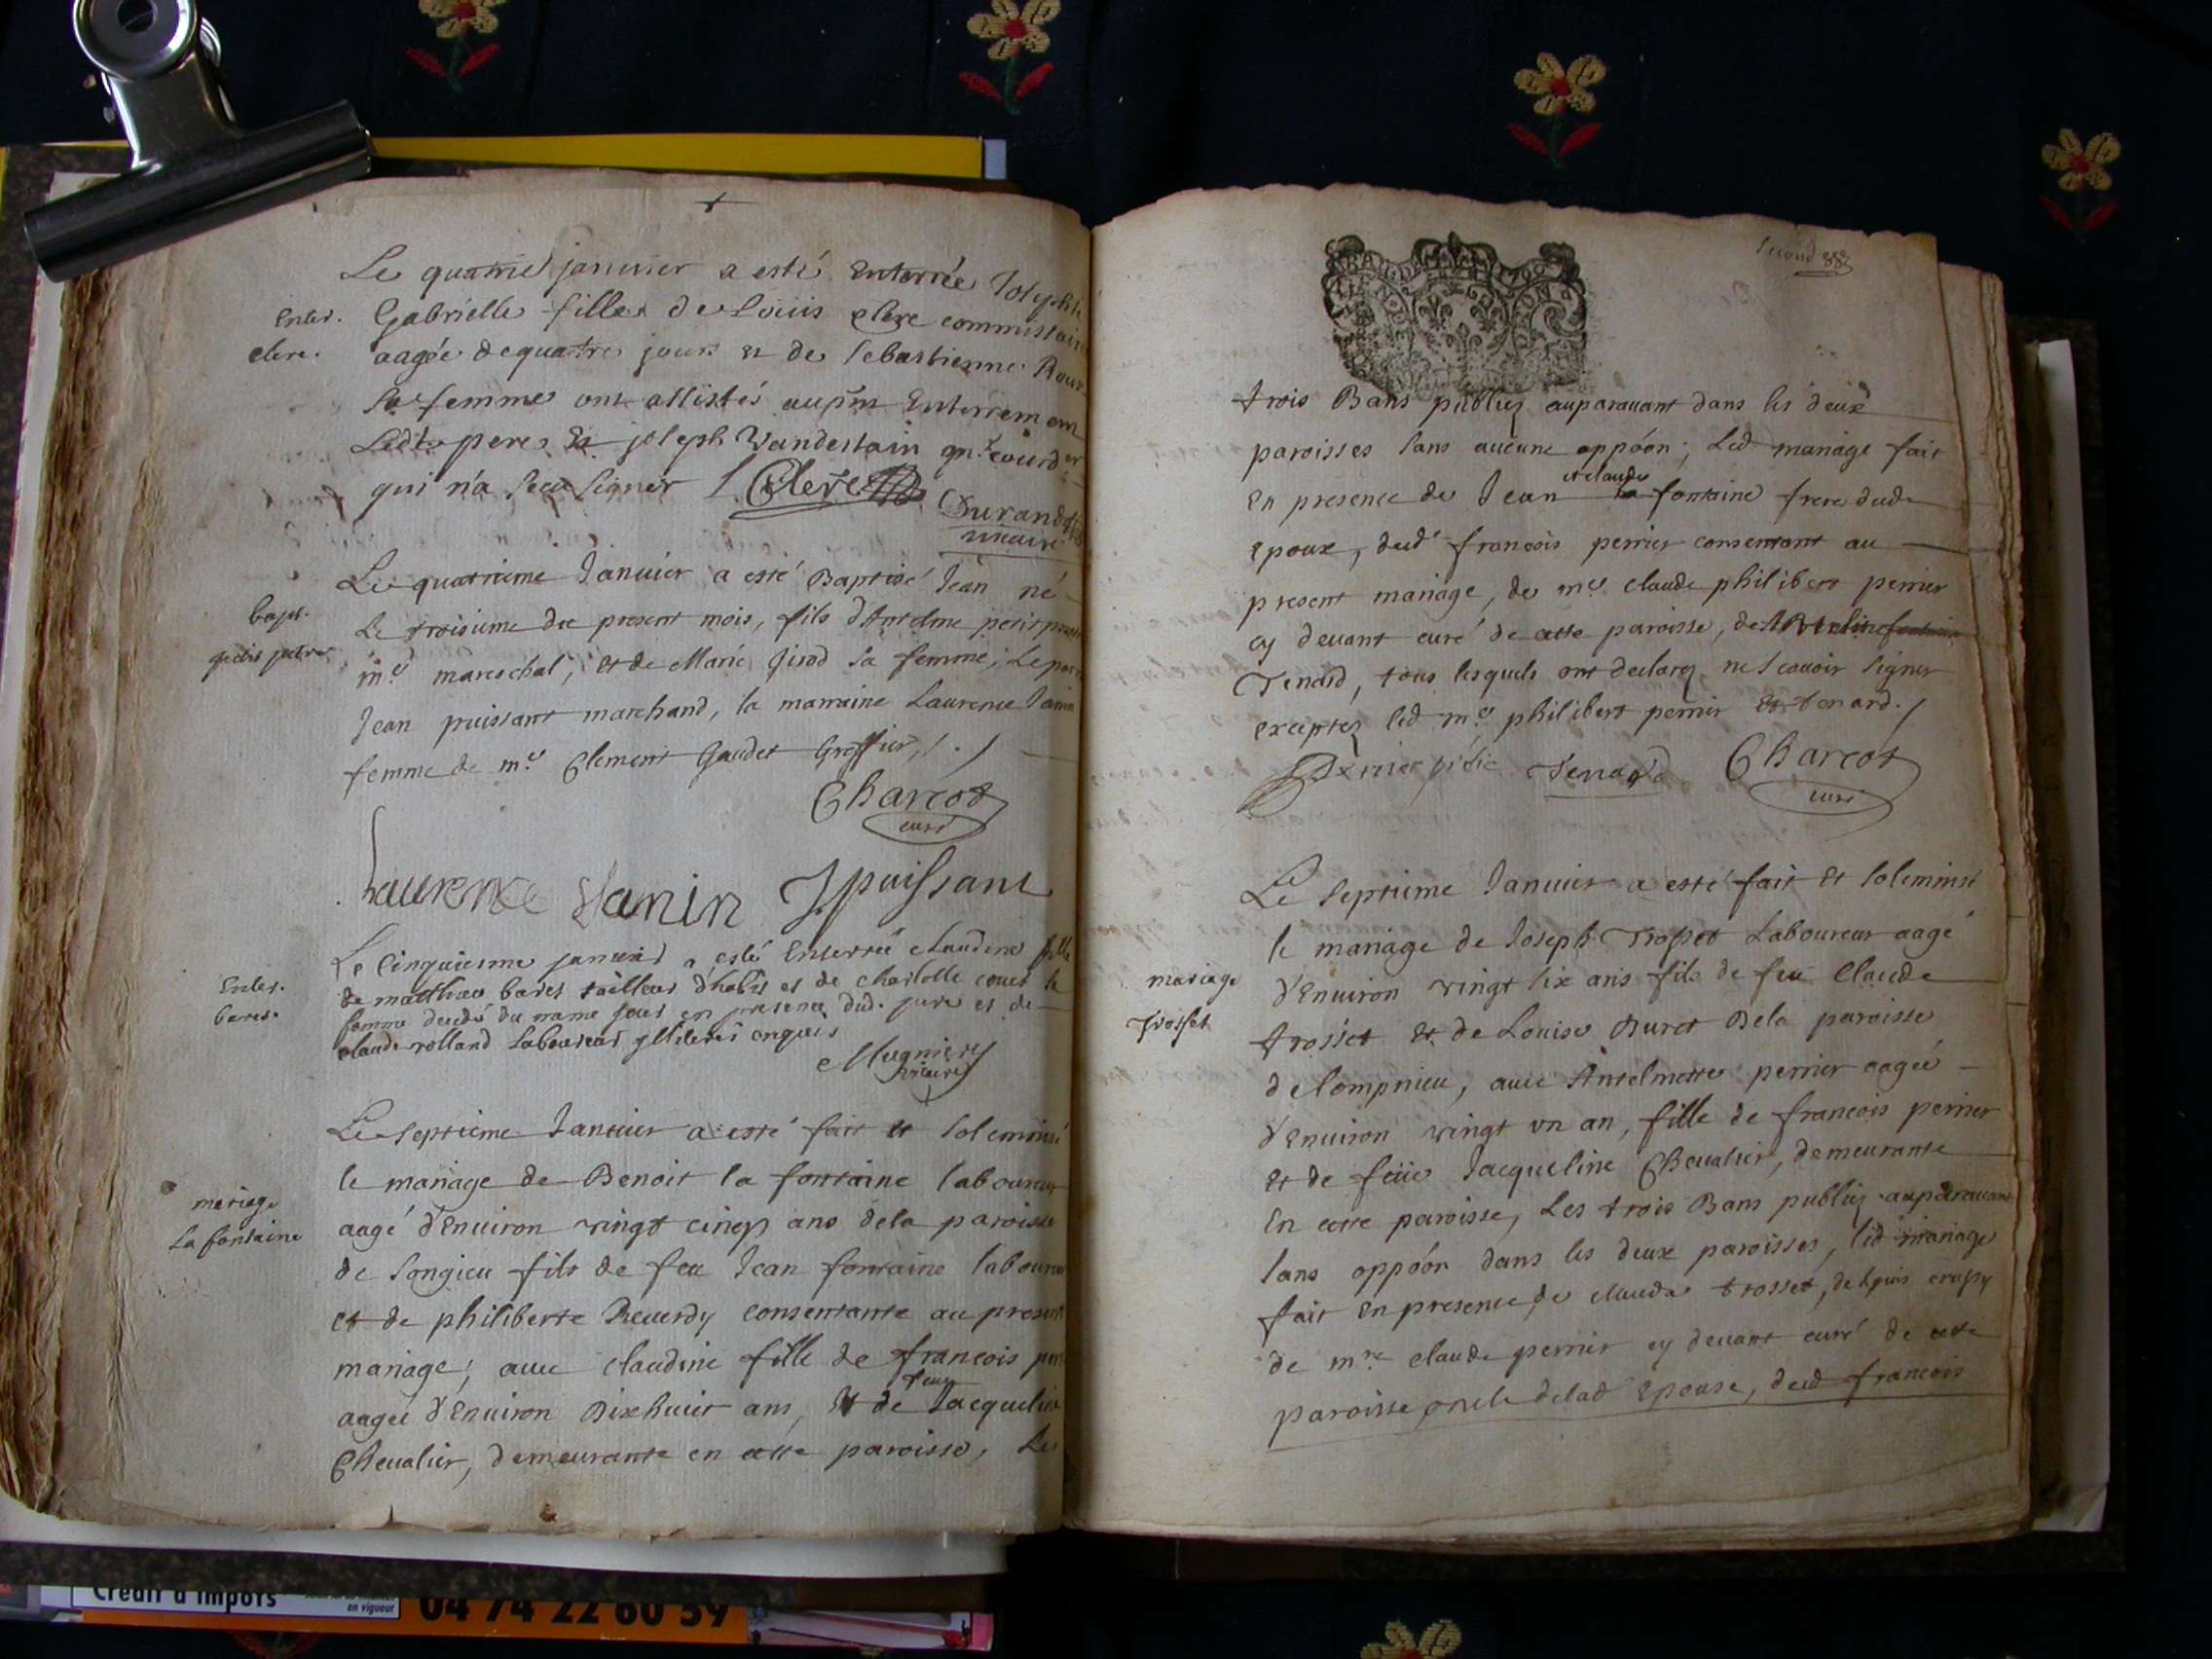 Le quatrie janvier a esté Enterrée Josephte
Enter. clerc.
Gabrielle fille de Loüis clerc commissaire
aagée de quatre jours et de Sebastienne Roux
sa femme ont assistés au pnt Enterrement
Ledt pere Et joseph Wandestain
qui n'a sceu signer L Clerc
Durand
vicaire
Le quatrieme Januier a esté Baptisé Jean né
bapt.
petit
Le troisieme du present mois, fils d'Antelme petit
me mareschal, et de Marie Girod sa femme, Le
Jean puissant marchand, la marraine Laurence Janin
femme de me Clement Gaudet Greffier, /. /
Charcot
curé
Laurence Janin J puissant
Le Cinquiesme januier a esté Enterrée claudine fille
Enter. baret.
de matthieu baret tailleur d'habits et de charlotte
femme decedé du mame jour en presence dud. pere et de
claude rolland Laboureur illiterés enquis
Mugnier
vicaire
Le septieme Januier a esté fait et solemnisé
le mariage de Benoit la fontaine laboureur
mariage
La fontaine
aagé d'Enuiron vingt cinq ans dela paroisse
de songieu fils de feu Jean fontaine laboureur
et de philiberte Reuerdy consentante au present
mariage; auec claudine fille de francois
aagée d'Enuiron Dixhuict ans, Et de feue Jacqueline
Cheualier, demeurante en cette paroisse, Les
second
trois Bans publiez auparauant dans les deux
paroisses sans aucune oppóon; Led mariage fait
En presence de Jean et claude la fontaine frere dud
Epoux, dud francois perrier consentant au
present mariage, de me claude philibert perrier
cy deuant curé de cette paroisse, de
Tenard, tous lesquels ont declarez ne scauoir signer
exceptez led me philibert perrier Et tenard. /
Perrier Tenard Charcot
curé
Le septieme Januier a esté fait et solemnisé
le mariage de Joseph Trosset Laboureur aagé
mariage
trosset
d'Enuiron vingt six ans fils de feu Claude
trosset Et de Louise Buret Dela paroisse
de lompnieu, auec Antelmette perrier aagée
d'Enuiron vingt vn an, fille de francois perrier
Et de feüe Jacqueline Cheualier, demeurante
En cette paroisse, Les trois Bans publiez auparauant
sans oppóon dans les deux paroisses, led mariage
fait En presence de claude trosset, de
de mre claude perrier cy deuant curé de cette
paroisse oncle delad Epouse, dud francois
Crédit d'impôts
en vigueur
04 74 22 60 59